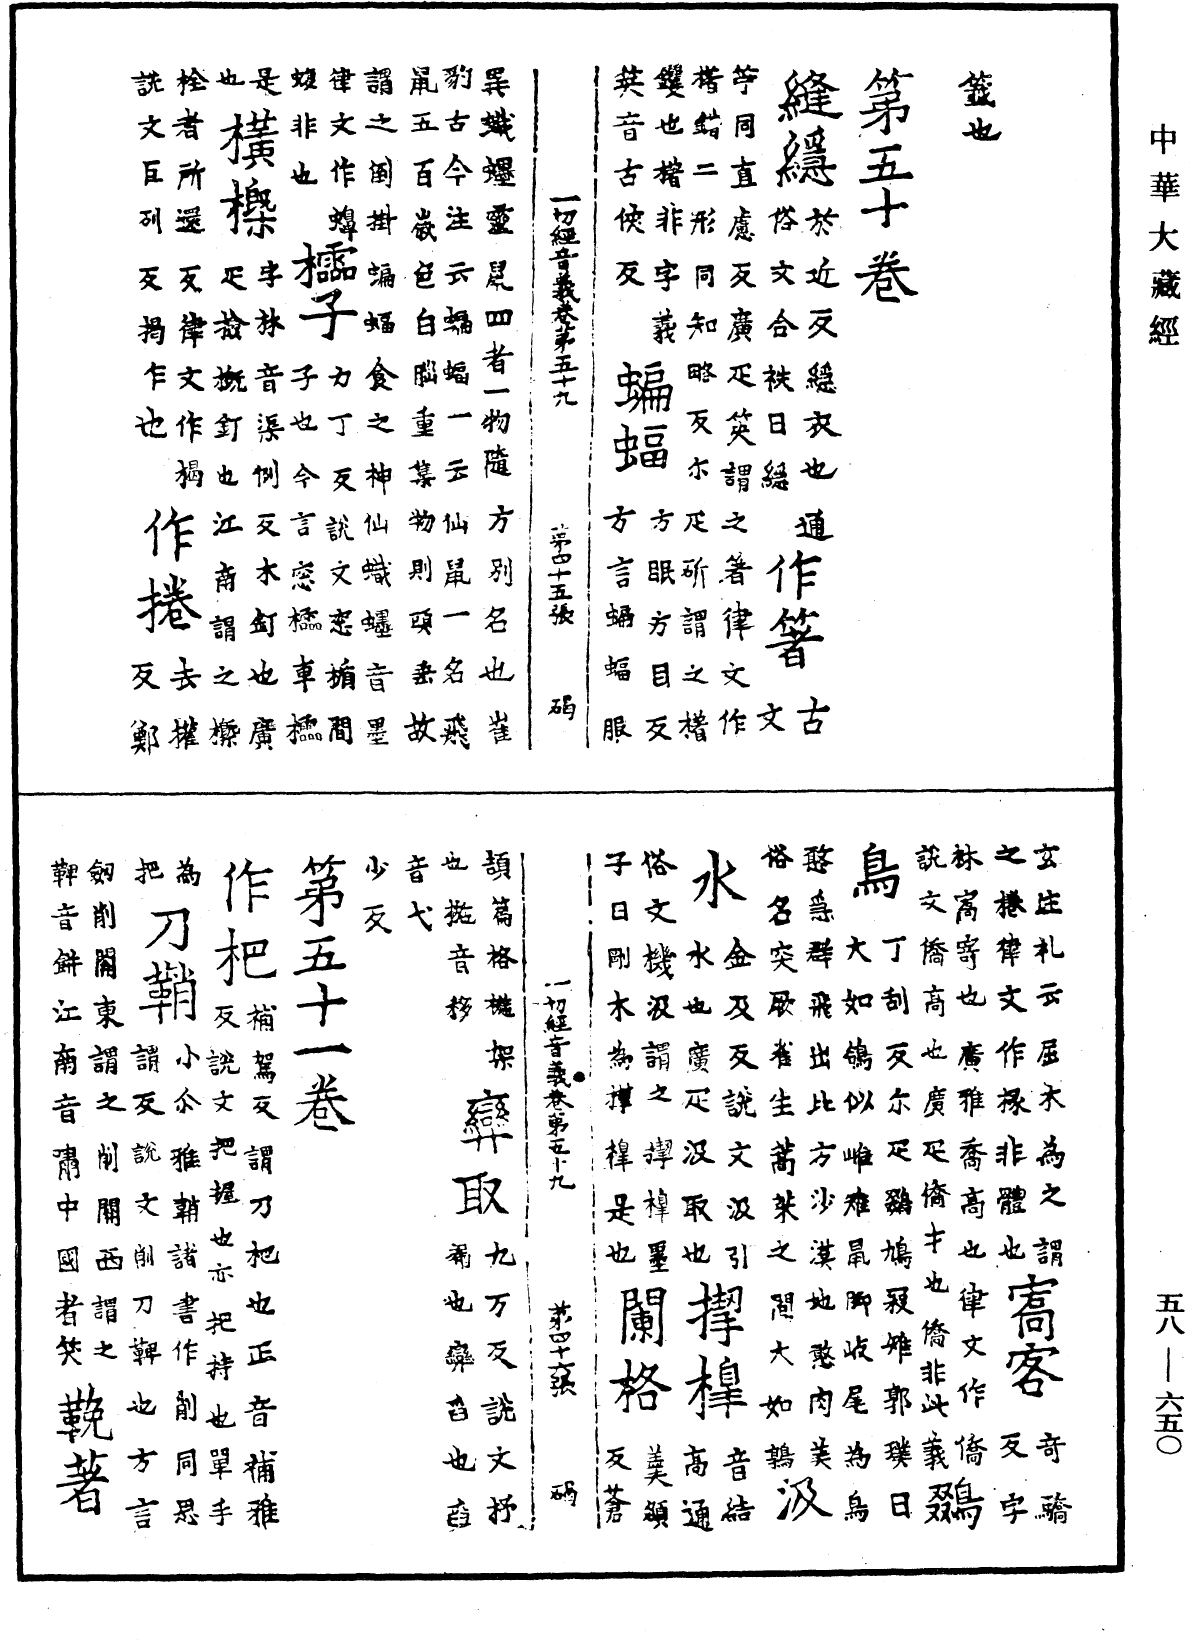 中華大藏經
籤也
第五十卷
縫縕 於近反縕衣也
俗文合袟曰縕 通作箸 古文
竽同直慮反廣疋筴謂之箸律文作
楮錯二形同知略反尔疋斫謂之楮
钁也楮非字義 方眠方目反
筴音古俠反 蝙蝠 方言蝙蝠服
一切經音義卷第五十九 第四十五張 碣
異蟙䘃靈鼠四者一物隨方別名也崔
豹古今注云蝙蝠一云仙鼠一名飛
鼠五百歲色白腦重集物則頭垂故
謂之倒掛蝙蝠食之神仙蟙䘃音墨
律文作蟑 力丁反說文窓楯間
蛷非也 櫺子 子也今言窓櫺車櫺
是 字林音渠例反木釘也廣
也 橫橜 疋橃橛釘也江南謂之橜
栓者所還反律文作楬 去權
說文巨列反揭乍也 作捲 反鄭
玄注礼云屈木為之謂
之棬律文作椽非體也 寄客 奇驕反字
林寄寄也廣雅喬高也律文作僑
說文僑高也廣疋僑才也僑非此義 鵽
鳥 丁刮反尔疋鵽鳩寇雉郭璞曰
大如鴿似雌雉鼠脚岐尾為鳥
憨急群飛出北方沙漠地憨肉美
俗名突厥雀生蒿萊之間大如鶉 汲
水 金及反說文汲引
水也廣疋汲取也 㨝槔 音結高通
俗文機汲謂之㨝槔墨
子曰剛木為㨝槔是也 闌格 羹頟反蒼
一切經音義卷第五十九 第四十六張 碣
頡篇格㩴架 㪻取 九万反說文抒
也 扡音移 漏也㪻舀也舀
音弋
少反
第五十一卷
作杷 補駕反謂刀杷也正音補雅
反說文把握也亦把持也單手
為 小尒雅鞘諸書作削同思
把 刀鞘 謂反說文削刀鞞也方言
劒削關東謂之削關西謂之
鞞音餅江南音嘯中國音笑 鞔著
五八—六五〇